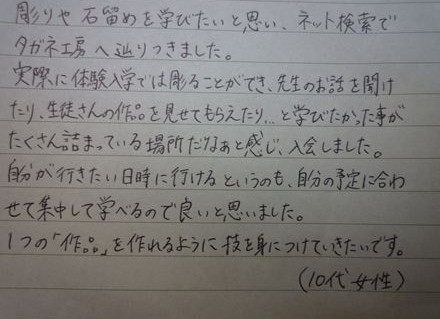 彫りや石留めを学びたいと思い、ネット検索で
タガネ工房へ辿りつきました。
実際に体験入学では彫ることができ、先生のお話を聞け
たり、生徒さんの作品を見せてもらえたり…と学びたかった事が
たくさん詰まっている場所だなぁと感じ、入会しました。
自分が行きたい日時に行けるというのも、自分の予定に合わ
せて集中して学べるので良いと思いました。
1つの「作品」を作れるように技を身につけていきたいです。
(10代女性)